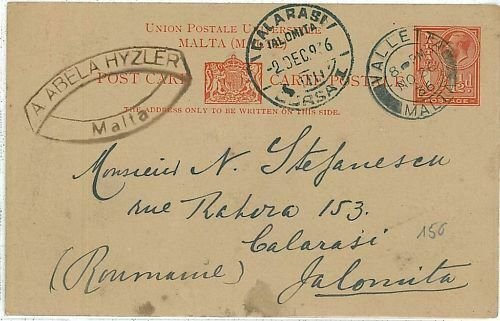 UNION POSTALE UNIVERSELLE
MALTA
POST CARD
THE ADDRESS ONLY TO BE WRITTEN ON THIS SIDE.
A. ABELA HYZLER
Malta
CALARASI
IALOMITA
2 DEC
VALLETTA
MALTA
POSTAGE
Monsieur N. Stefanescu
rue Rahova 153.
Calarasi
(Roumanie) Jalomita
150